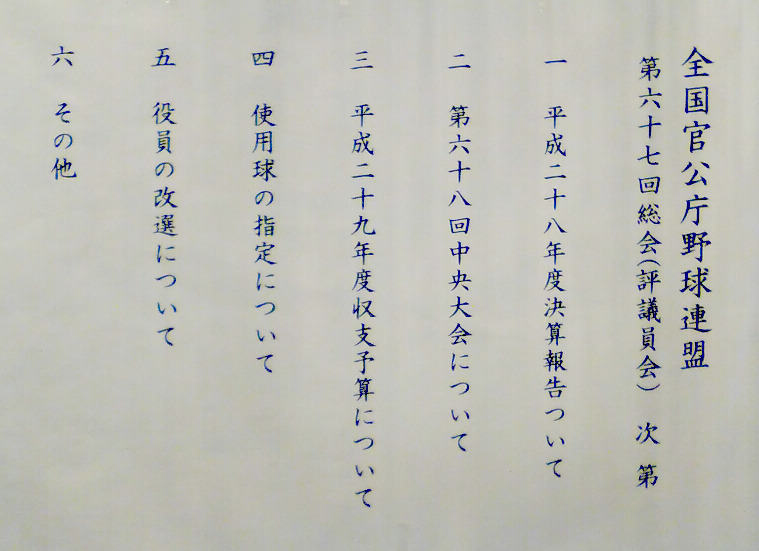 全国官公庁野球連盟
第六十七回総会(評議員会) 次 第
一 平成二十八年度決算報告ついて
二 第六十八回中央大会について
三 平成二十九年度収支予算について
四 使用球の指定について
五 役員の改選について
六 その他